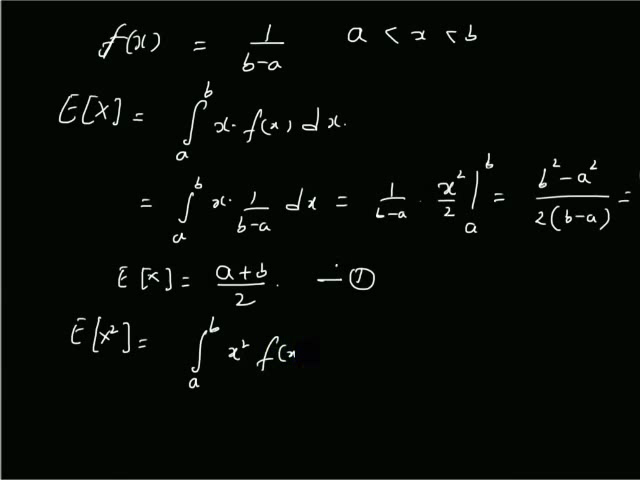 f(x) = 1/(b-a) a < x < b
E[X] = ∫_a^b x. f(x) dx.
= ∫_a^b x. 1/(b-a) dx = 1/(b-a) . x²/2 |_a^b = (b²-a²)/(2(b-a)) =
E[X] = (a+b)/2 . — ①
E[X²] = ∫_a^b x² f(x